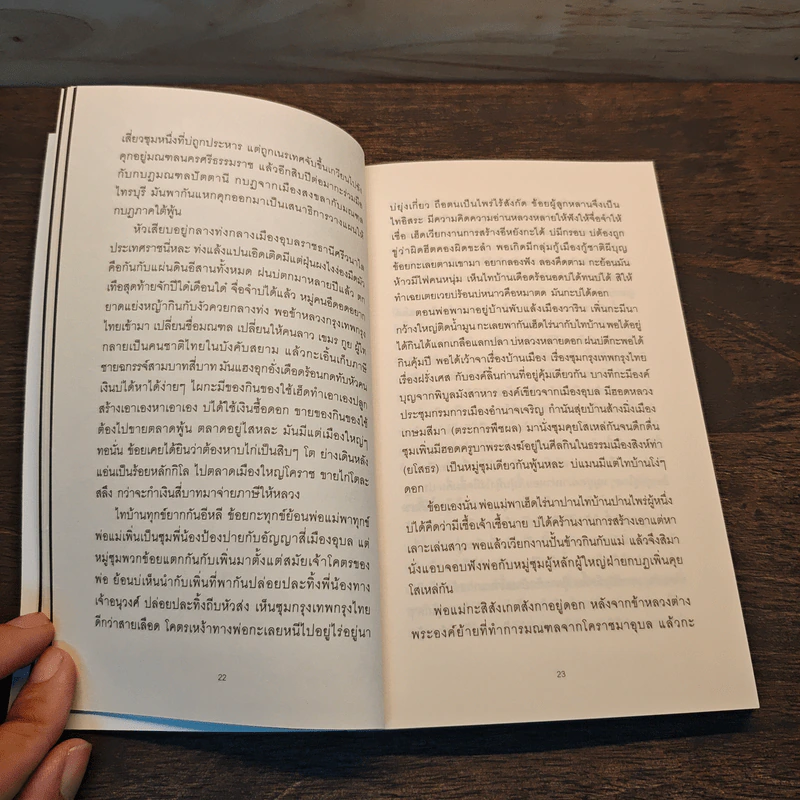 เสี่ยวซุมหนึ่งที่บ่ถูกประหาร แต่ถูกเนรเทศจับขึ้นเกวียนไปขัง
คุกอยู่มณฑลนครศรีธรรมราช แล้วอีกสิบปีต่อมากะร่วมมือ
กับกบฏมณฑลปัตตานี กบฏจากเมืองสงขลากับมณฑล
ไทรบุรี มันพากันแหกคุกออกมาเป็นเสนาธิการวางแผนให้
กบฏภาคใต้พู้น
หัวเสียบอยู่กลางท่งกลางเมืองอุบลราชธานีศรีวนาไล
ประเทศราชนี่หละ ท่งแล้งแปนเอิดเติดมีแต่ฝุ่นผงไง่ง่องมืดมัว
คือกันกับแผ่นดินอีสานทั้งหมด ฝนบ่ตกมาหลายปีแล้ว ตก
เทือสุดท้ายจักปีได๋เดือนได๋ จื่อจำบ่ได้แล้ว หมู่คนอึดอดอยาก
ยาดแย่งหญ้ากินกับงัวควยกลางท่ง พอข้าหลวงกรุงเทพกรุง
ไทยเข้ามา เปลี่ยนชื่อมณฑล เปลี่ยนให้คนลาว เขมร กูย ผู้ไท
กลายเป็นคนชาติไทยในบังคับสยาม แล้วกะเอิ้นเก็บภาษี
ชายฉกรรจ์สามบาทสี่บาท มันแฮงอุกอั่งเดือดร้อนกดทับหัวคน
เงินบ่ได้หาได้ง่ายๆ ไผกะมีของกินของใช้เฮ็ดทำเอาเองปลูก
สร้างเอาเองหาเอาเอง บ่ได้ใช้เงินซื้อดอก ขายของกินของใช้
ต้องไปขายตลาดพู้น ตลาดอยู่ไสหละ มันมีแต่เมืองใหญ่ๆ
ทอนั่น ข้อยเคยได้ยินว่าต้องหาบไก่เป็นสิบๆ โต ย่างเดินหลัง
แอ่นเป็นร้อยหลักกิโล ไปตลาดเมืองใหญ่โคราช ขายไก่โตละ
สลึง กว่าจะกำเงินสี่บาทมาจ่ายภาษีให้หลวง
ไทบ้านทุกข์ยากกันอีหลี ข้อยกะทุกข์ย้อนพ่อแม่พาทุกข์
พ่อแม่เพิ่นเป็นซุมพี่น้องป้องปายกับอัญญาสี่เมืองอุบล แต่
หมู่ซุมพวกข้อยแตกกันกับเพิ่นมาตั้งแต่สมัยเจ้าโคตรของ
พ่อ ย้อนบ่เห็นนำกับเพิ่นที่พากันปล่อยปละทิ้งพี่น้องทาง
เจ้าอนุวงศ์ ปล่อยปละทิ้งถีบหัวส่ง เห็นซุมกรุงเทพกรุงไทย
ดีกว่าสายเลือด โคตรเหง้าทางพ่อกะเลยหนีไปอยู่ไร่อยู่นา
22
บ่ยุ่งเกี่ยว ถือตนเป็นไพร่ไร้สังกัด ข้อยผู้ลูกหลานจึงเป็น
ไทอิสระ มีความคิดความอ่านหลวงหลายให้ฟังให้จื่อจำให้
เชื่อ เฮ็ดเวียกงานการสร้างอีหยังกะได้ บ่มีกรอบ บ่ต้องถูก
ขู่ว่าผิดฮีตคองผิดขะลำ พอเกิดมีกลุ่มกู้เมืองกู้ชาติผีบุญ
ข้อยกะเลยตามเขามา อยากลองฟัง ลองคิดตาม กะย้อนมัน
ห้าวมีไฟคนหนุ่ม เห็นไทบ้านเดือดร้อนอดบ่ได้ทนบ่ได้ สิให้
ทำเฉยเตยเวยเปร้อนบ่หนาวคือหมาตด มันกะบ่ได้ดอก
ตอนพ่อพามาอยู่บ้านพับแล้งเมืองวาริน เพิ่นกะมีนา
กว้างใหญ่ติดน้ำมูน กะเลยพากันเฮ็ดไร่นากับไทบ้าน พอได้อยู่
ได้กินได้แลกเกลือแลกปลา บ่หลวงหลายดอก ฝนบ่ดีกะพอได้
กินคุ้มปี พอได้เว้าจาเรื่องบ้านเมือง เรื่องซุมกรุงเทพกรุงไทย
เรื่องฝรั่งเศส กับองค์ลิ้นก่านที่อยู่คุ้มเดียวกัน บางทีกะมีองค์
บุญจากพิบูลมังสาหาร องค์เขียวจากเมืองอุบล มีฮอดหลวง
ประชุมกรมการเมืองอำนาจเจริญ กำนันสุยบ้านส้างมิ่งเมือง
เกษมสีมา (ตระการพืชผล) มานั่งซุมคุยโสเหล่กันจนดึกดื่น
ซุมเพิ่นมีฮอดครูบาพระสงฆ์อยู่ในศีลกินในธรรมเมืองสิงห์ท่า
(ยโสธร) เป็นหมู่ซุมเดียวกันพู้นหละ บ่แมนมีแต่ไทบ้านโง่งๆ
ดอก
ข้อยเองนั่น พ่อแม่พาเฮ็ดไร่นาปานไทบ้านปานไพร่ผู้หนึ่ง
บ่ได้คึดว่ามีเชื้อเจ้าเชื้อนาย บ่ได้คร้านงานการสร้างเอาแต่หา
เลาะเล่นสาว พอแล้วเวียกงานปั้นข้าวกินกับแม่ แล้วจึงสิมา
นั่งแอบจอบฟังพ่อกับหมู่ซุมผู้หลักผู้ใหญ่ฝ่ายกบฏเพิ่นคุย
โสเหล่กัน
พ่อแม่กะสิสังเกตสังกาอยู่ดอก หลังจากข้าหลวงต่าง
พระองค์ย้ายที่ทำการมณฑลจากโคราชมาอุบล แล้วกะ
23